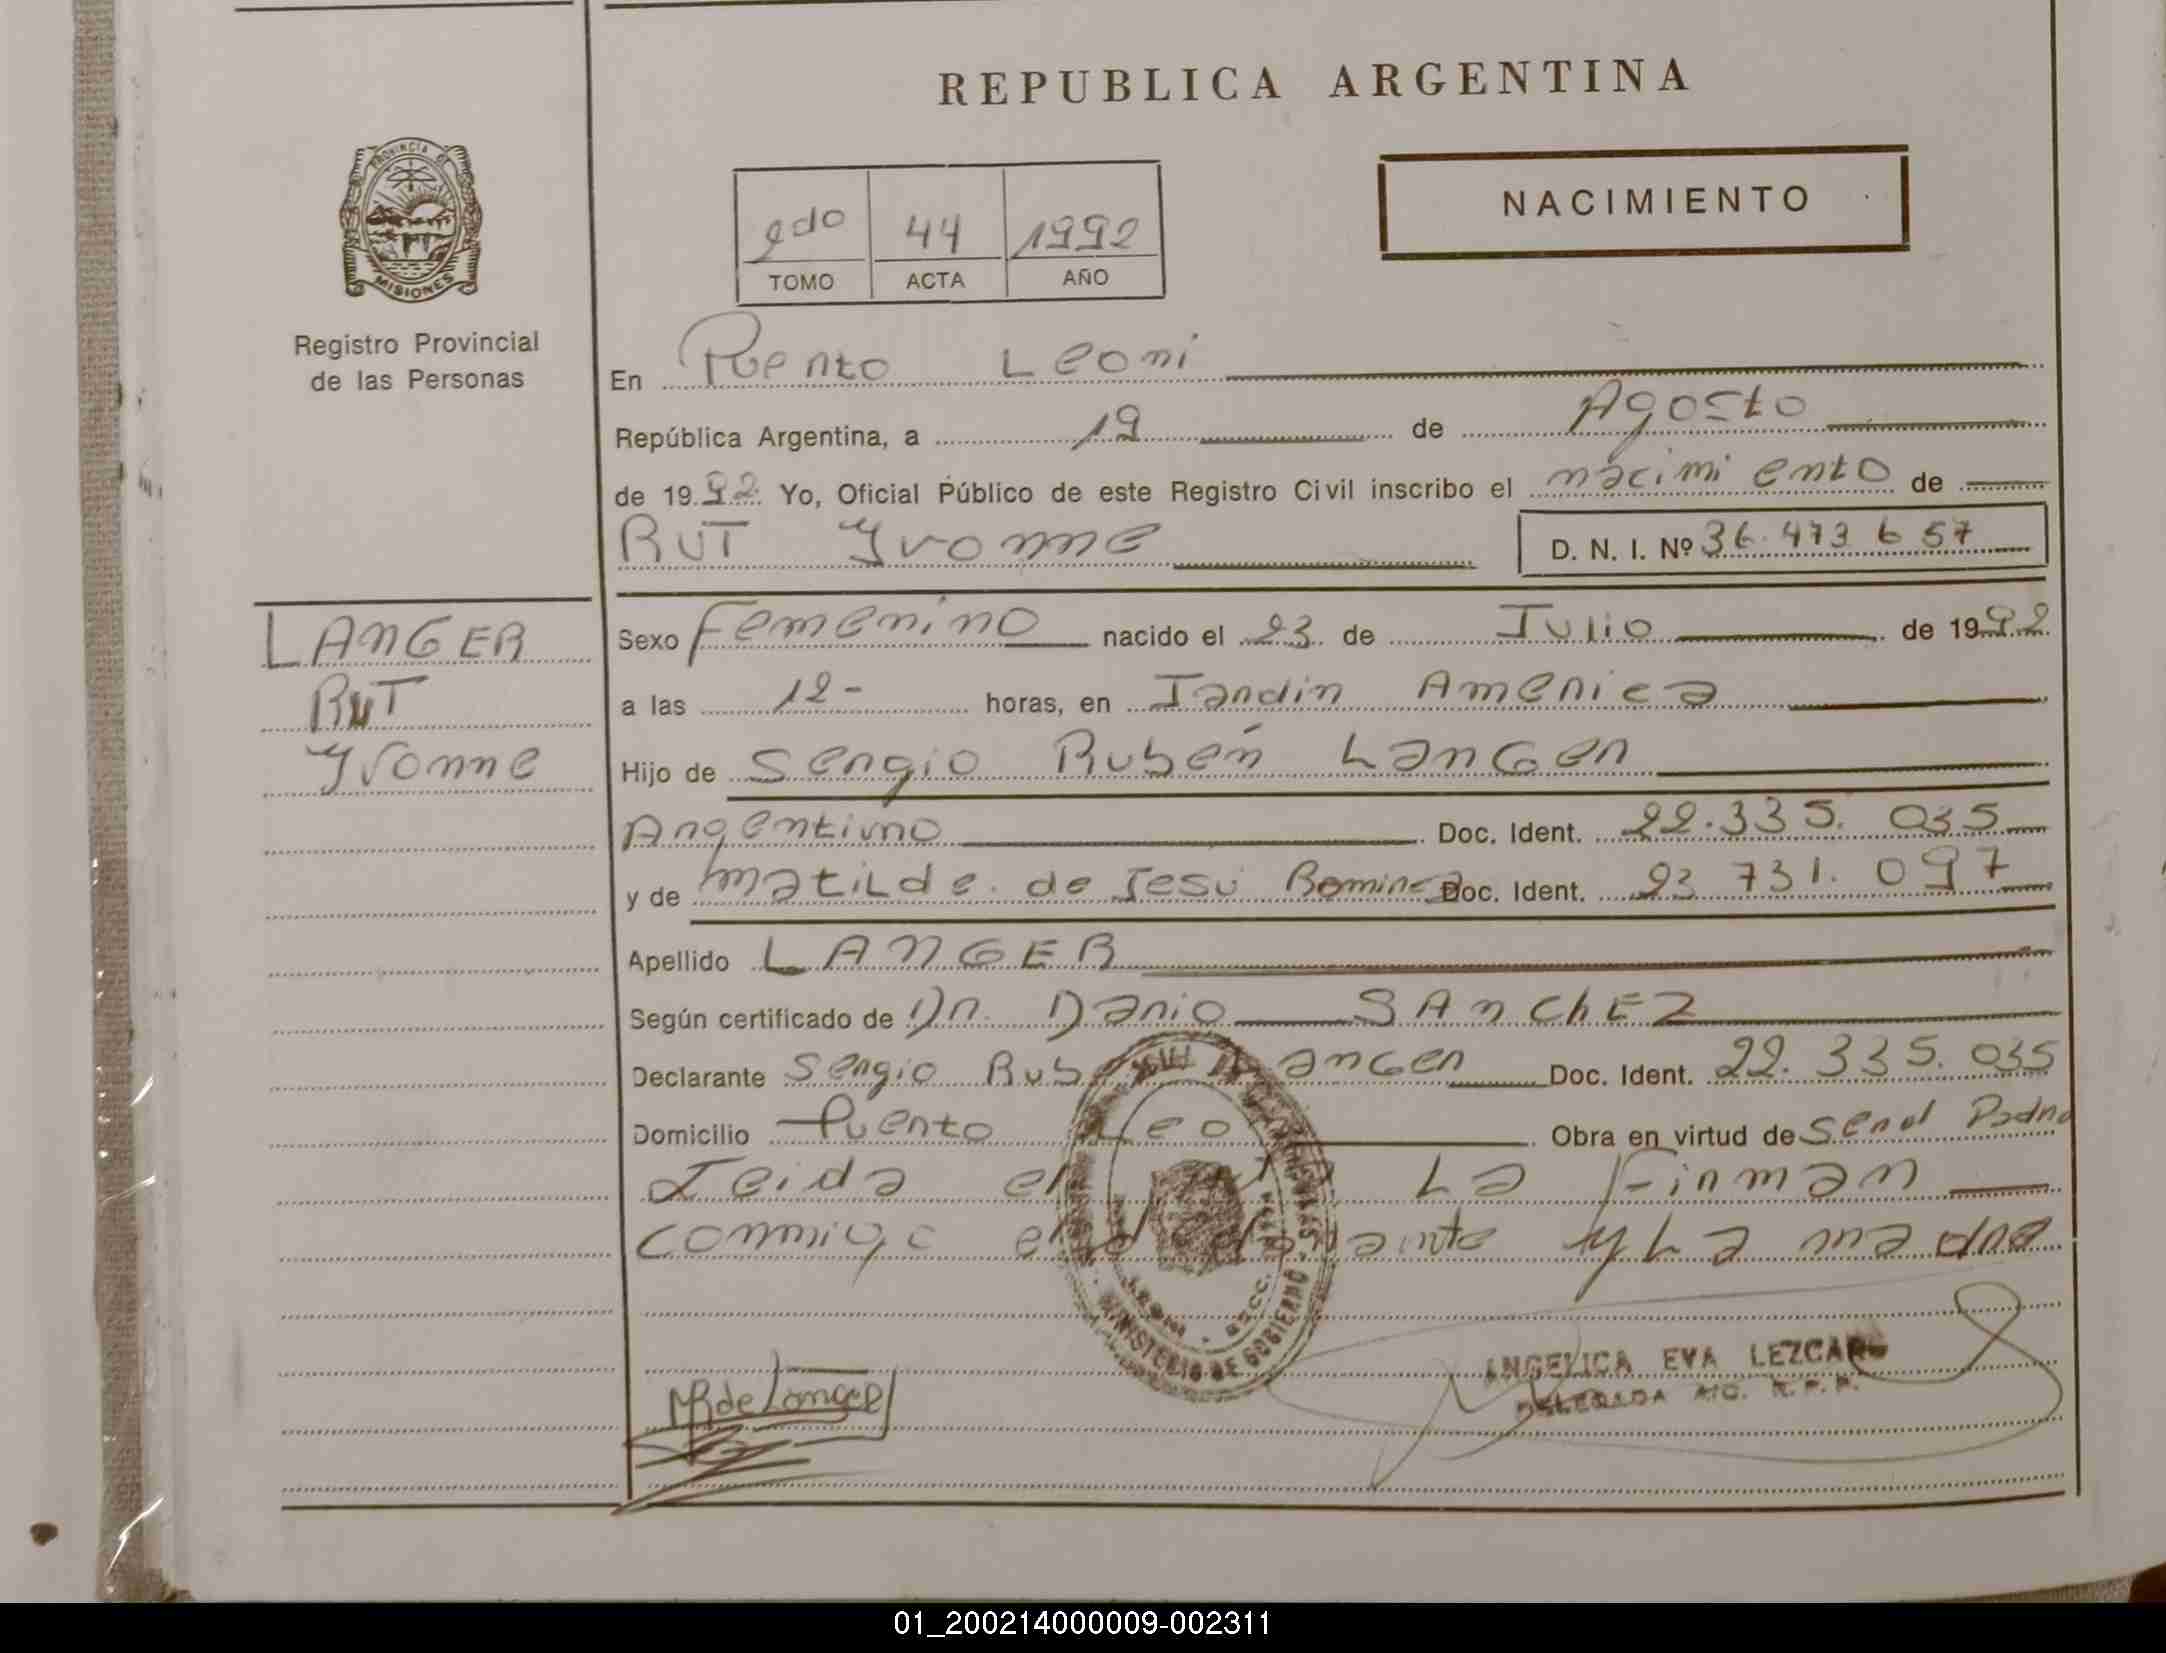 REPUBLICA ARGENTINA
NACIMIENTO
2do 44 1992
TOMO ACTA AÑO
PROVINCIA DE
MISIONES
Registro Provincial
de las Personas
En Puerto Leoni
República Argentina, a 19 de Agosto
de 1992 Yo, Oficial Público de este Registro Civil inscribo el nacimiento de
RUT Yvonne D. N. I. Nº 36.473 657
LANGER
RUT
Yvonne
Sexo Femenino nacido el 23 de Julio de 1992
a las 12- horas, en Jardin America
Hijo de Sergio Rubén Langer
Argentino Doc. Ident. 22.335.035
y de Matilde de Jesu Doc. Ident. 23 731.097
Apellido LANGER
Según certificado de Dr. Dario SAnchEZ
Declarante Sergio Rub anger Doc. Ident. 22.335.035
Domicilio Puerto Leo Obra en virtud de Ser el Padre
Leida el La Firman
conmigo el ante y La madre
MINISTERIO DE GOBIERNO
MR de Langer
ANGELICA EVA LEZCANO
DELEGADA R. P. P.
01_200214000009-002311